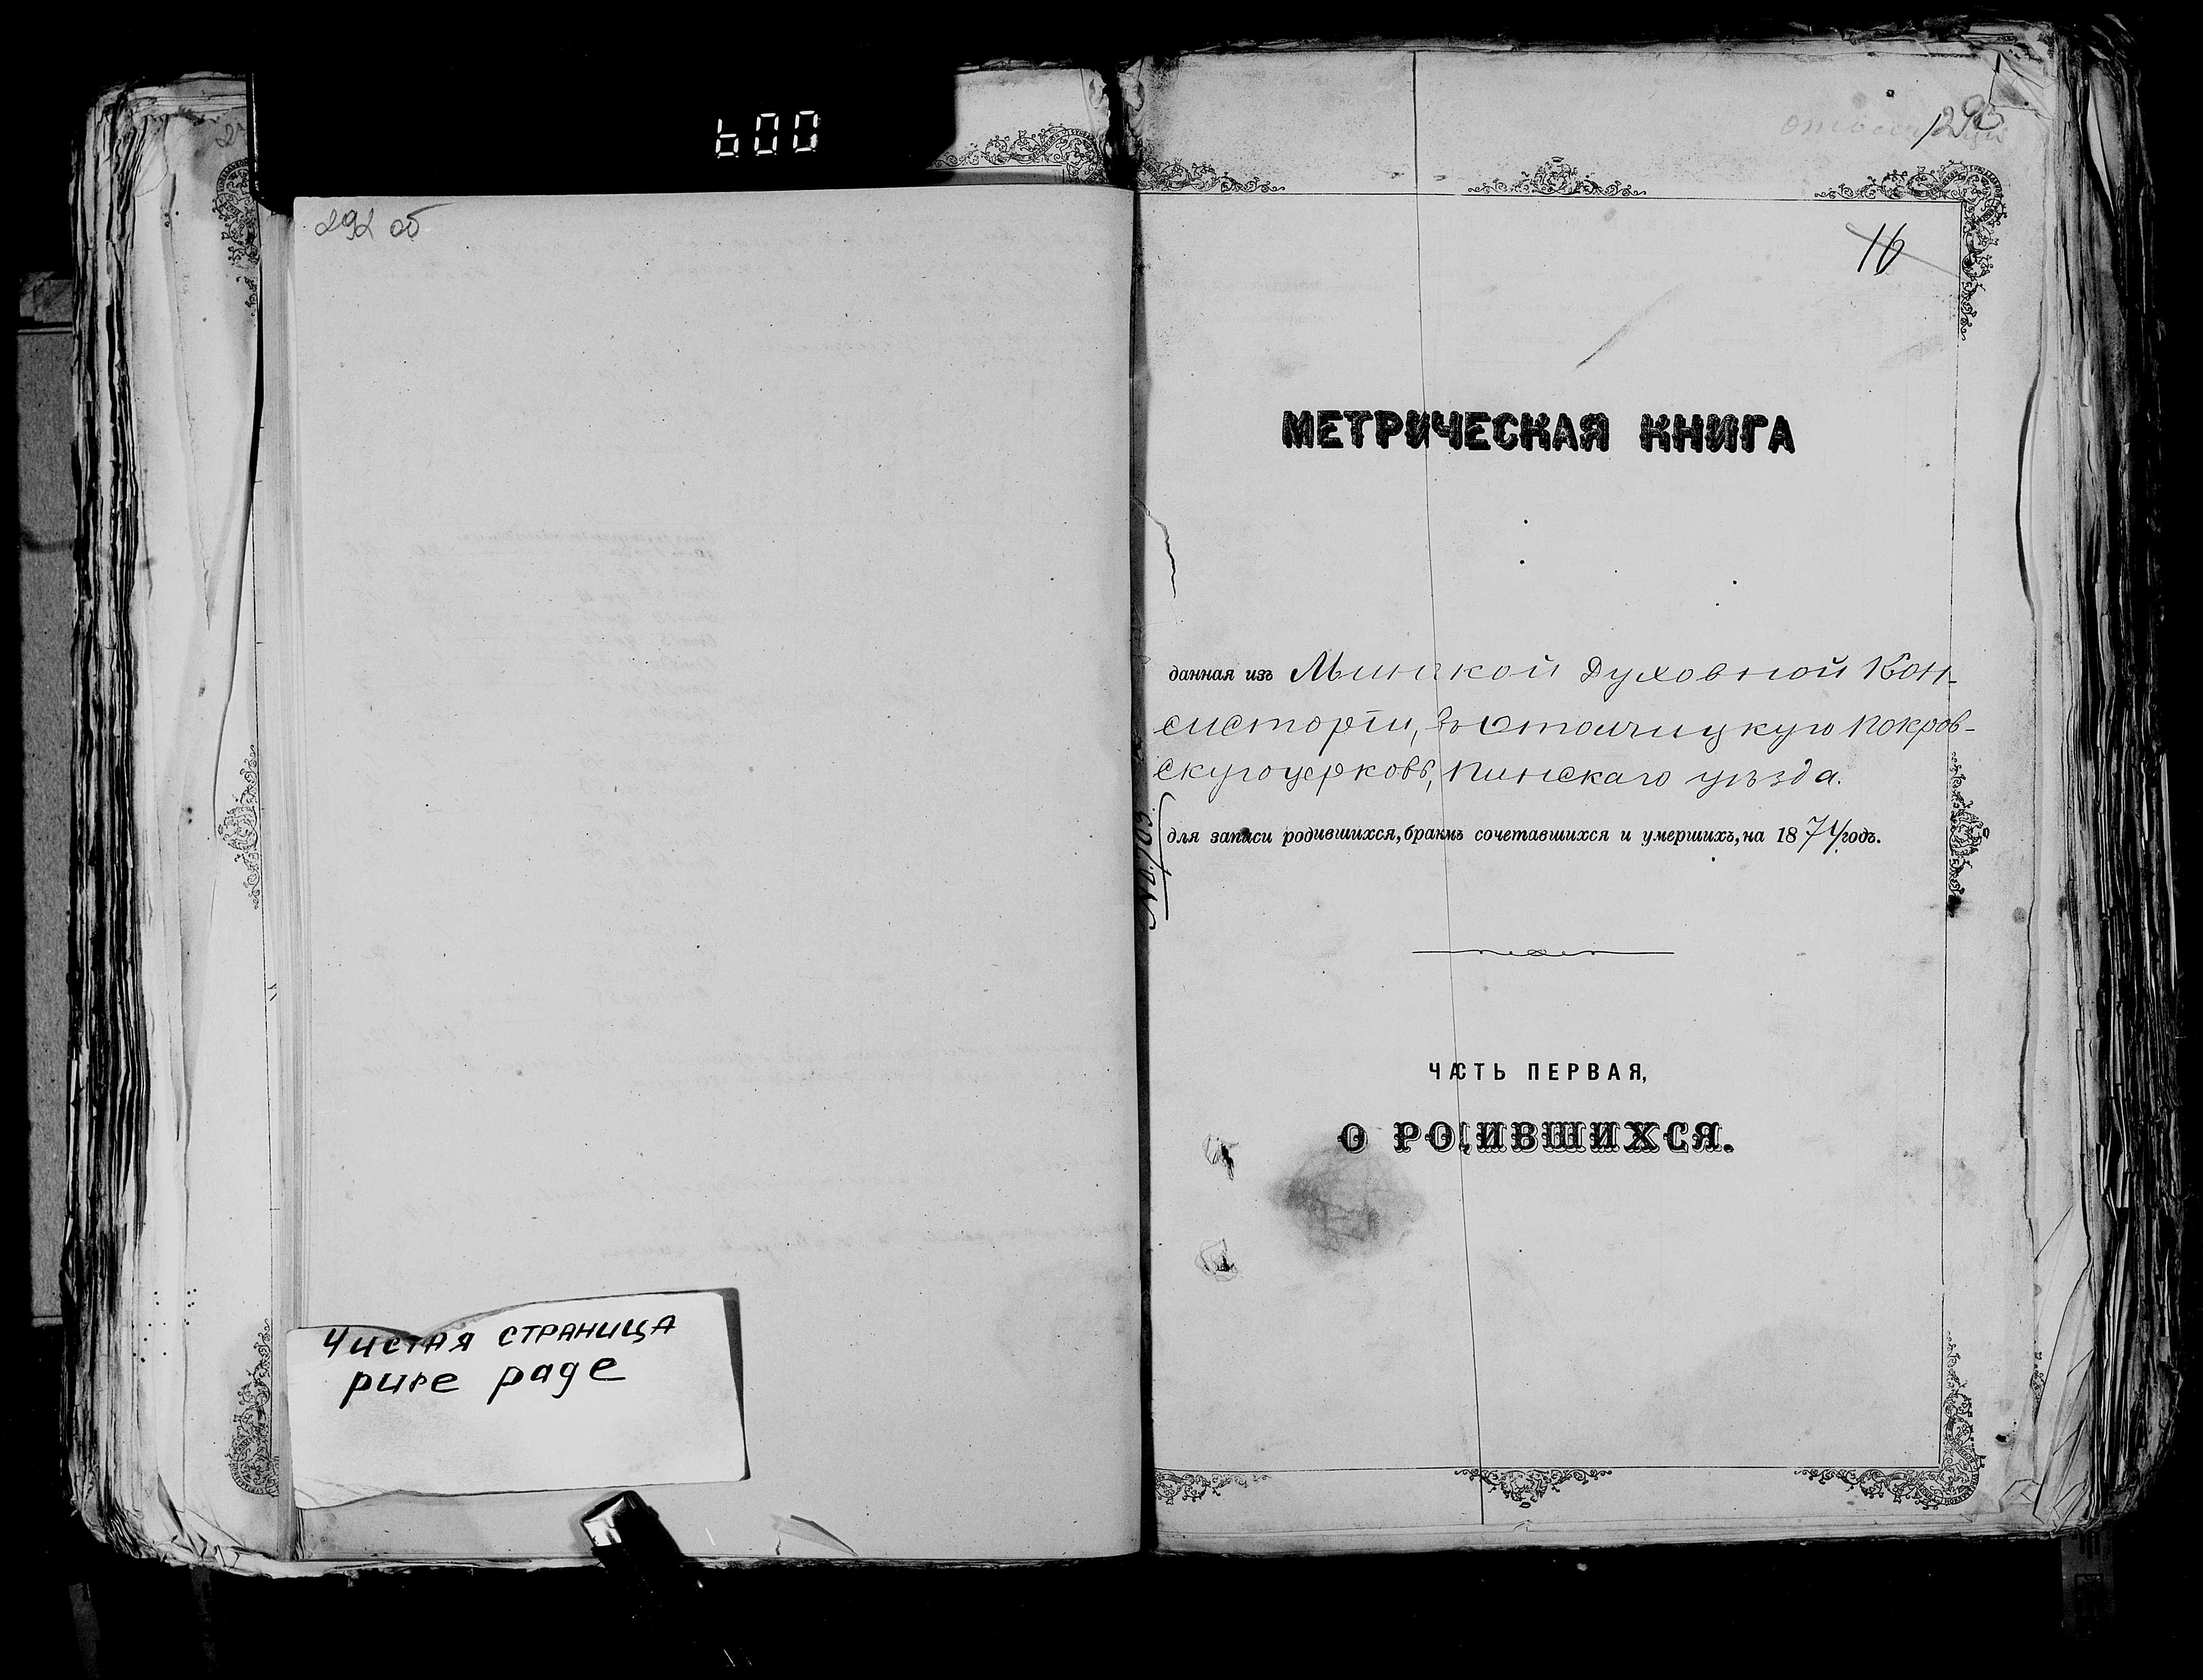 600
292 об
Чистая страница
pure page
293
16
МЕТРИЧЕСКАЯ КНИГА
данная изъ Минской Духовной Кон-
систоріи, въ Стошицкую Покров-
скую церковь, Пинскаго уѣзда.
для записи родившихся, бракмъ сочетавшихся и умершихъ, на 1874 годъ.
ЧАСТЬ ПЕРВАЯ,
О РОДИВШИХСЯ.